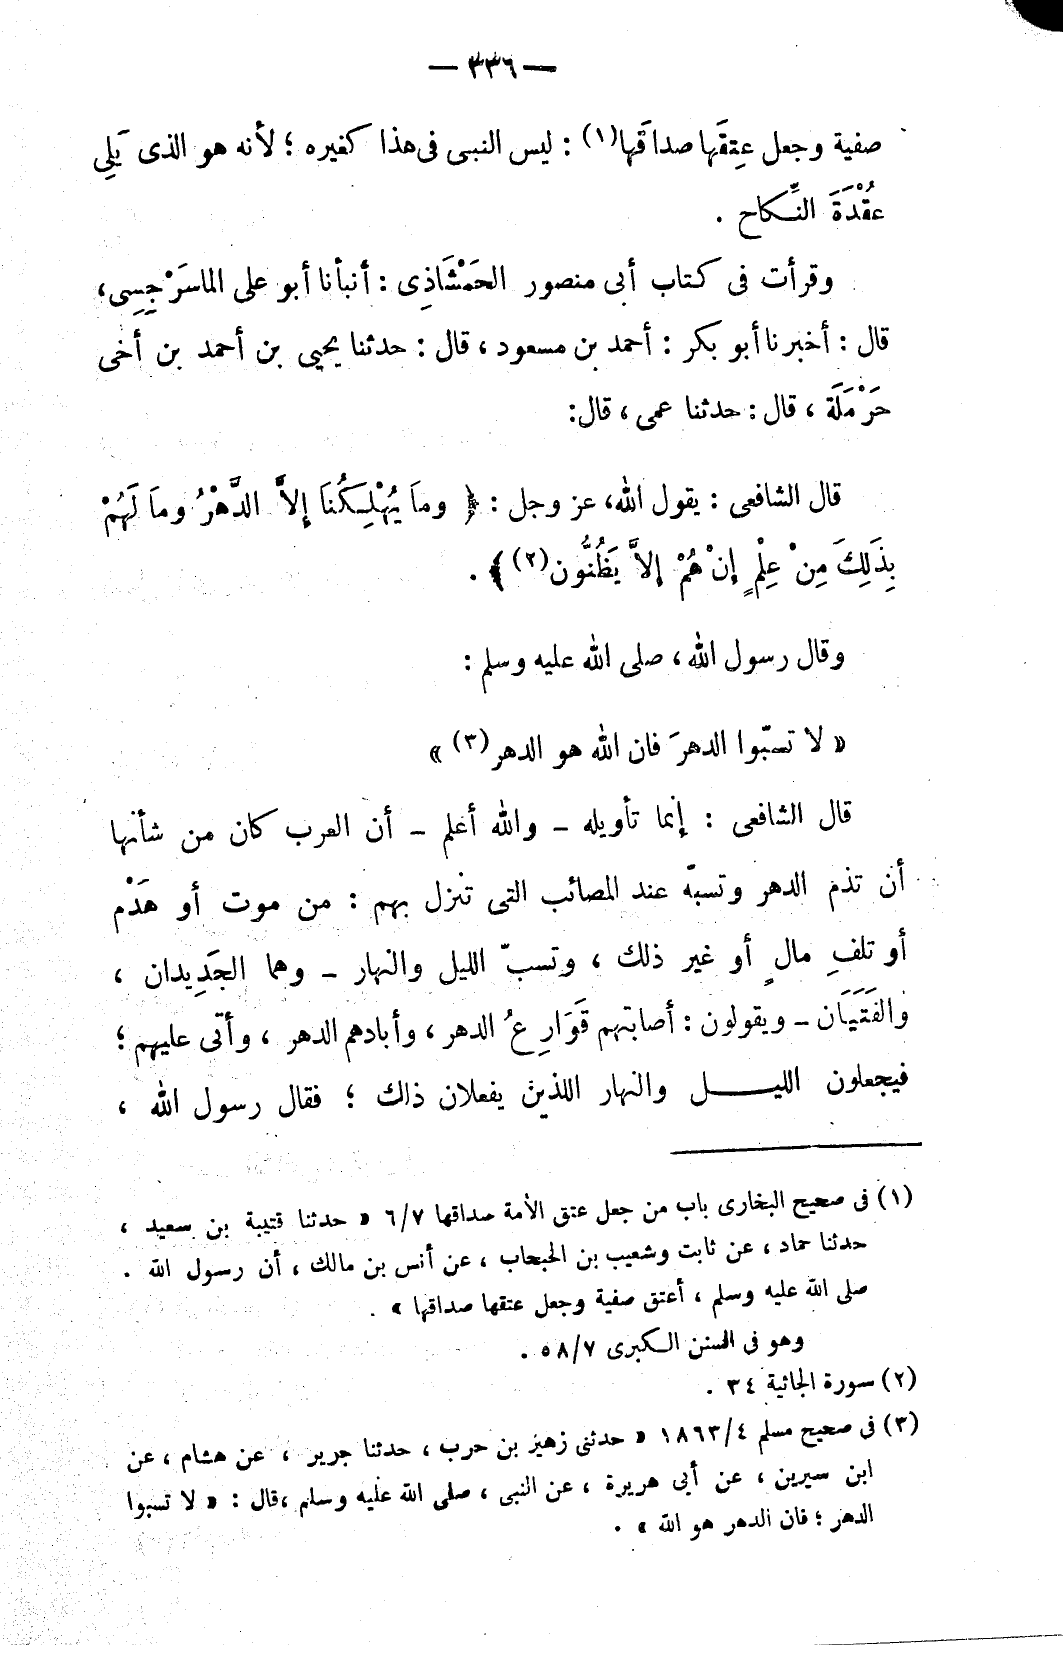 — ٣٣٦ —
صفية وجعل عِتقَها صداقَها(١) : ليس النبى فى هذا كغيره ؛ لأنه هو الذى يَلِى
عُقْدَةَ النِّكاح .
وقرأت فى كتاب أبى منصور الحَمْشَاذِى : أنبأنا أبو على الماسَرْجِسِى،
قال : أخبرنا أبو بكر : أحمد بن مسعود ، قال : حدثنا يحيى بن أحمد بن أخى
حَرْمَلَة ، قال : حدثنا عمى ، قال:
قال الشافعى : يقول الله، عز وجل : ﴿ وماَ يُهْلِكُناَ إِلاَّ الدَّهْرُ وماَ لَهُمْ
بِذَلِكَ مِنْ عِلْمٍ إِنْ هُمْ إِلاَّ يَظُنُّون(٢) ﴾ .
وقال رسول الله ، صلى الله عليه وسلم :
« لا تسبّوا الدهرَ فان الله هو الدهر(٣) »
قال الشافعى : إنما تأويله – والله أعلم – أن العرب كان من شأنها
أن تذم الدهر وتسبّه عند المصائب التى تنزل بهم : من موت أو هَدْم
أو تلفِ مالٍ أو غير ذلك ، وتسبّ الليل والنهار – وهما الجَدِيدان ،
والفَتَيَان – ويقولون : أصابتهم قَوَارِعُ الدهر ، وأبادهم الدهر ، وأتى عليهم ؛
فيجعلون الليــل والنهار اللذين يفعلان ذاك ؛ فقال رسول الله ،
(١) فى صحيح البخارى باب من جعل عتق الأمة صداقها ٦/٧ « حدثنا قتيبة بن سعيد ،
حدثنا حماد ، عن ثابت وشعيب بن الحبحاب ، عن أنس بن مالك ، أن رسول الله .
صلى الله عليه وسلم ، أعتق صفية وجعل عتقها صداقها » .
وهو فى السنن الكبرى ٥٨/٧ .
(٢) سورة الجاثية ٣٤ .
(٣) فى صحيح مسلم ١٨٦٣/٤ « حدثنى زهير بن حرب ، حدثنا جرير ، عن هشام ، عن
ابن سيرين ، عن أبى هريرة ، عن النبى ، صلى الله عليه وسلم ،قال : « لا تسبوا
الدهر ؛ فان الدهر هو الله » .